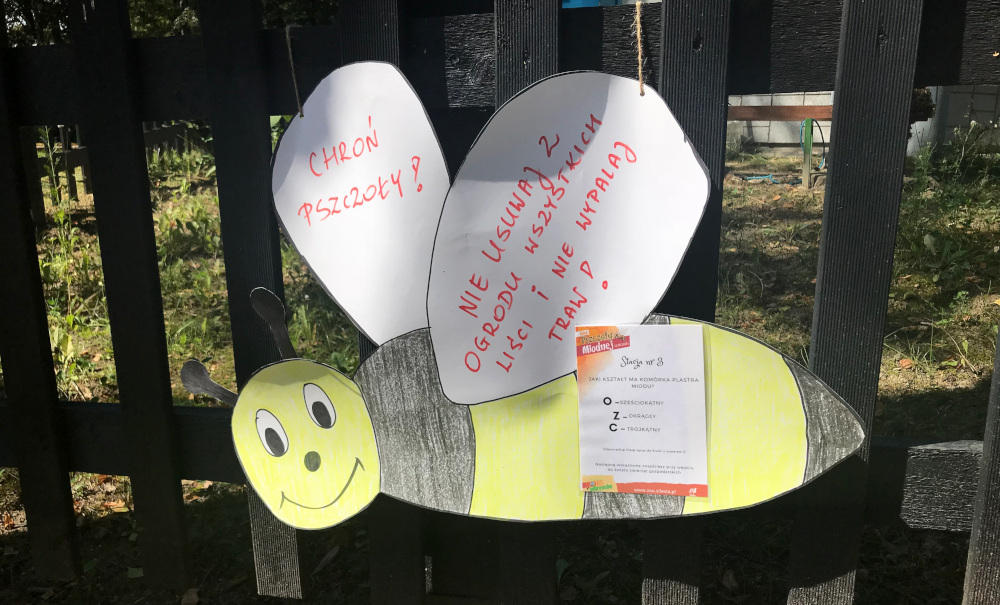 CHROŃ
PSZCZOŁY!
NIE USUWAJ Z
OGRODU WSZYSTKICH
LIŚCI I NIE WYPALAJ
TRAW!
Miodnej
Stacja nr 3
JAKI KSZTAŁT MA KOMÓRKA PLASTRA
MIODU?
O – SZEŚCIOKĄTNY
Z – OKRĄGŁY
C – TRÓJKĄTNY